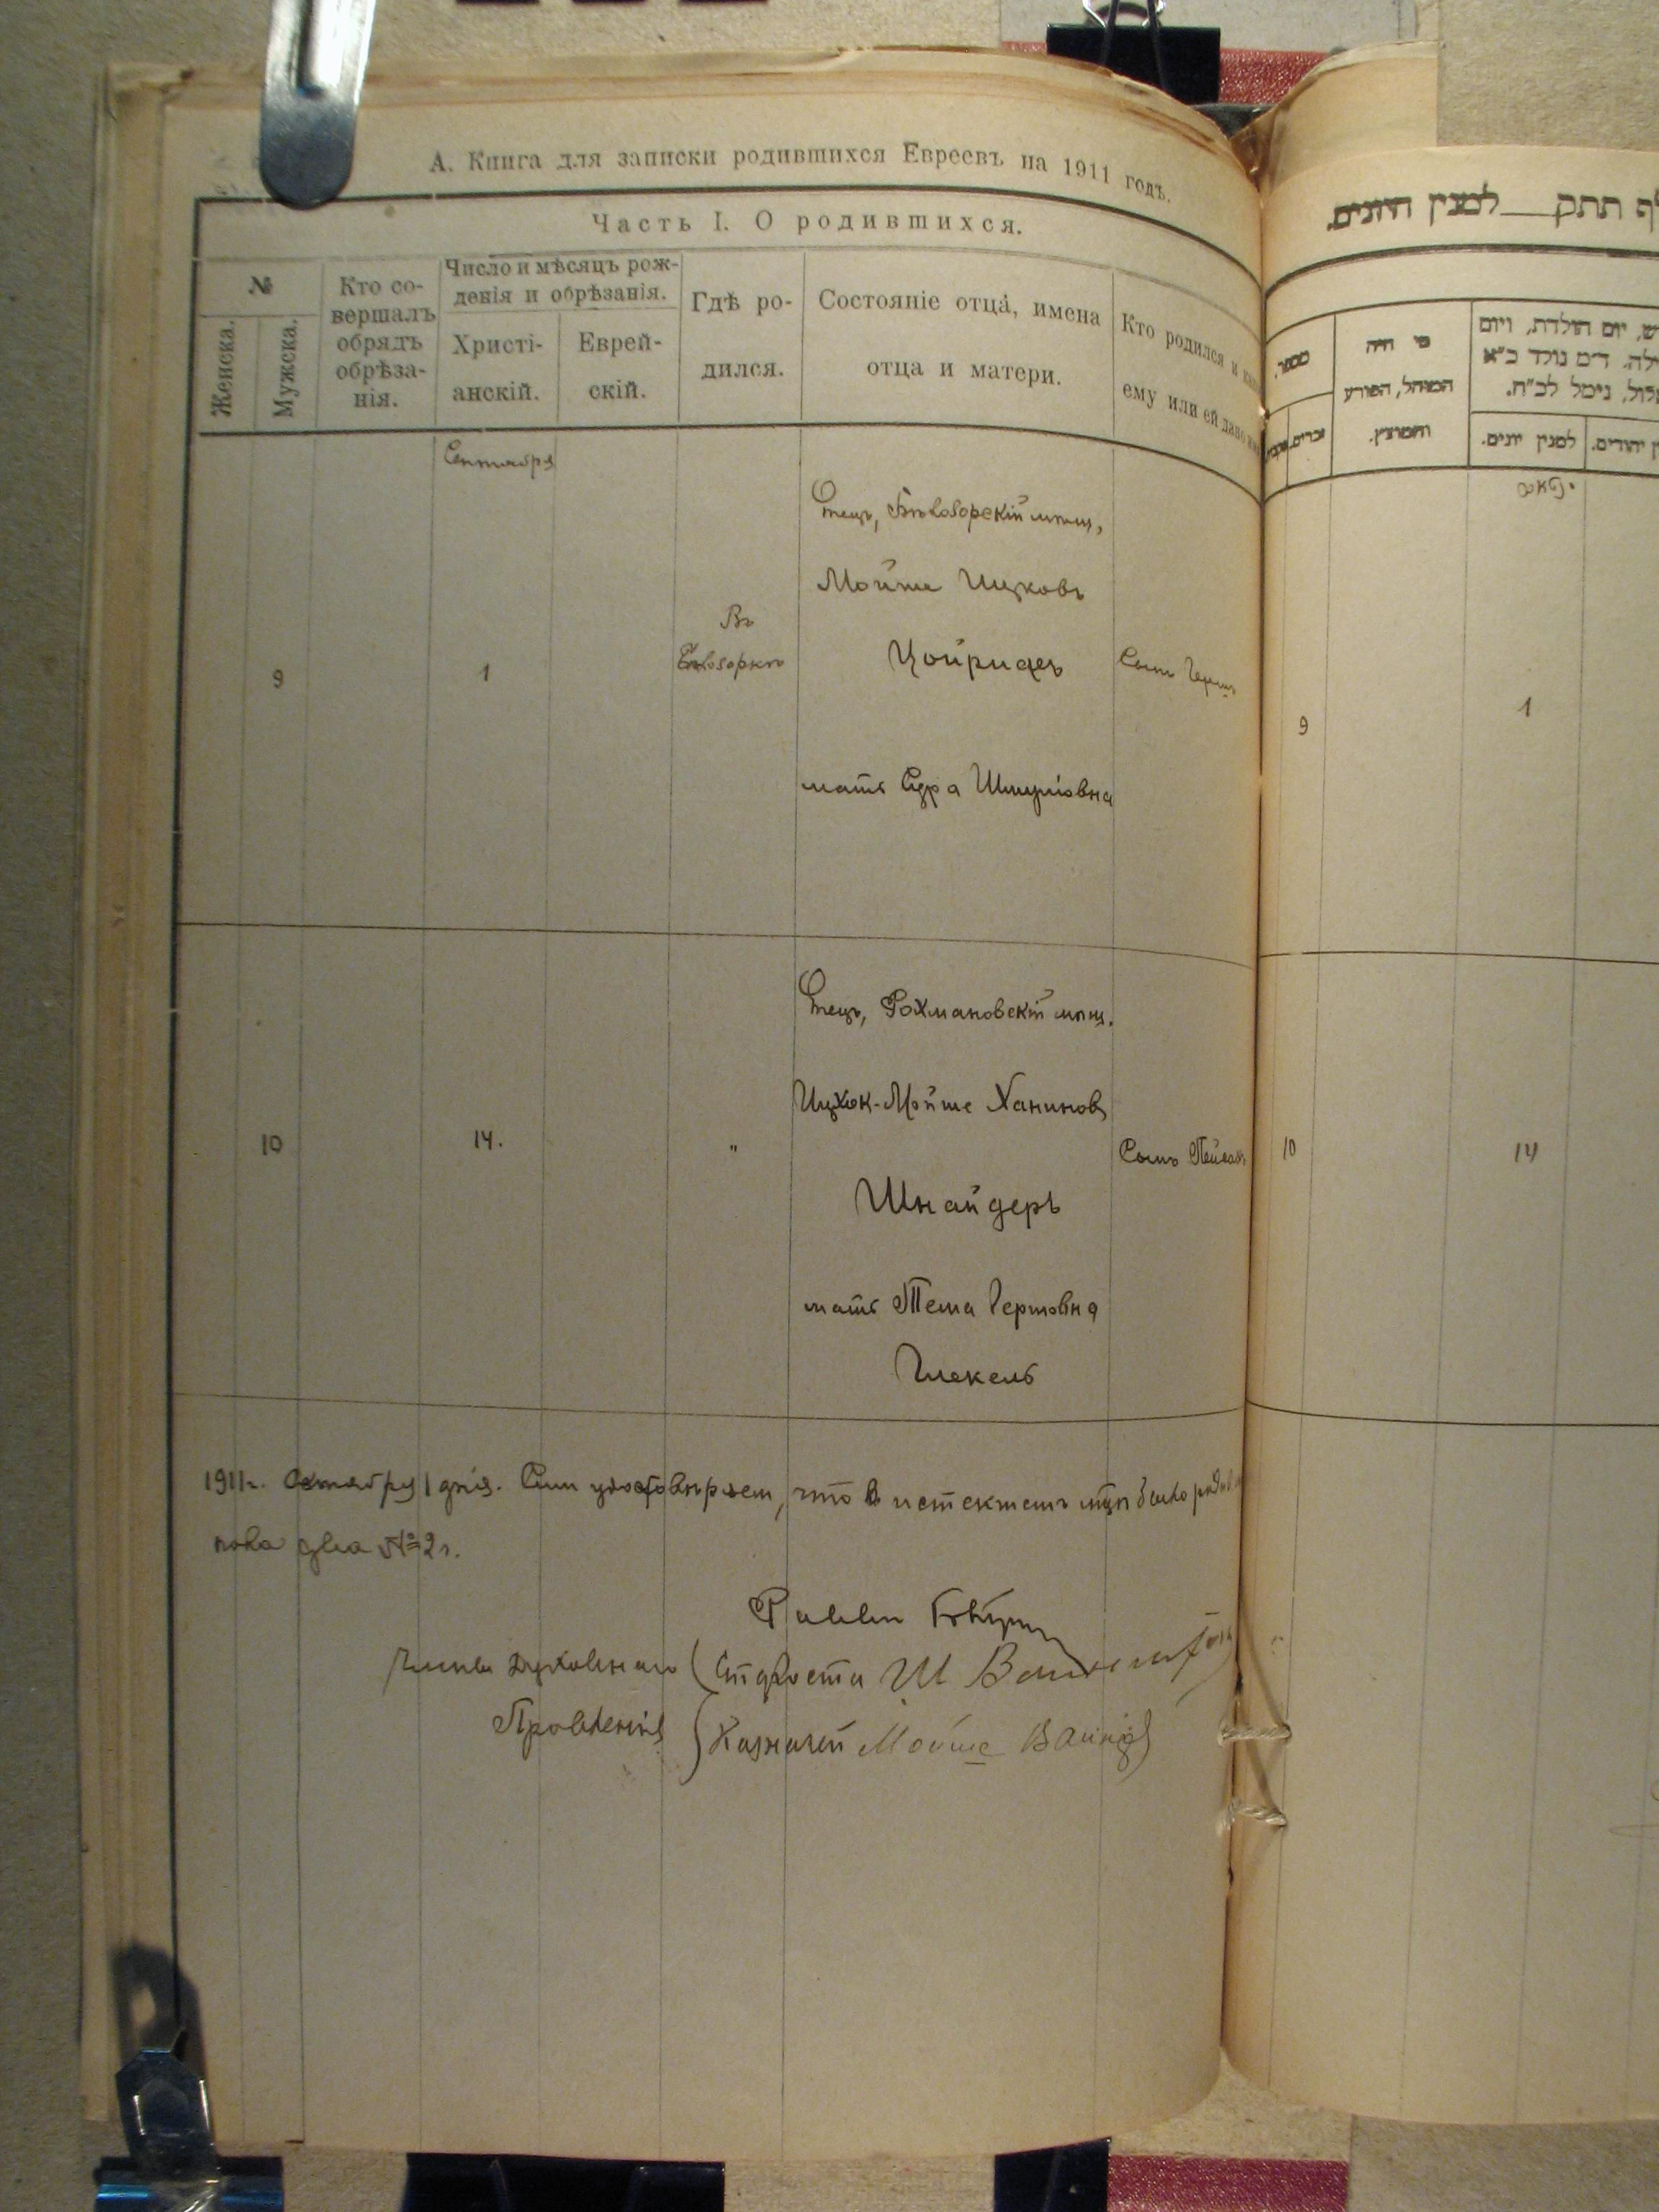 А. Книга для записки родившихся Евреевъ на 1911 годъ.
Часть I. О родившихся.
№
Женска.
Мужска.
Кто со-
вершалъ
обрядъ
обрѣза-
нія.
Число и мѣсяцъ рож-
денія и обрѣзанія.
Христі-
анскій.
Еврей-
скій.
Гдѣ ро-
дился.
Состояніе отца, имена
отца и матери.
Кто родился и
ему или ей дано
Сентября
9
1
Въ
Бѣлозоркѣ
Отецъ, Бѣлозорскій мѣщ,
Мойше Ицковъ
Цойрифъ
мать Сура Шмулiовна
Сынъ Герш
10
14.
"
Отецъ, Рохмановскій мѣщ.
Ицхок-Мойше Ханиновъ
Шнайдеръ
мать Тема Гершовна
Сынъ Пейсахъ
1911г. Октября 1 дня. Сим удостовѣряем, что в истекшемъ мцѣ было
два № 2.
Члены Духовнаго
Правленія
Староста Ш
Казначей Мойше
לף תתק___למנין היונים.
מספר.
זכרים.
מי היה
המוהל, הפורע
והמוצץ.
ש, יום הולדת, ויום
ילה. ד״מ נולד כ״א
לול, נימל לכ״ח.
למנין יונים.
ן יהודים.
9
1
10
14